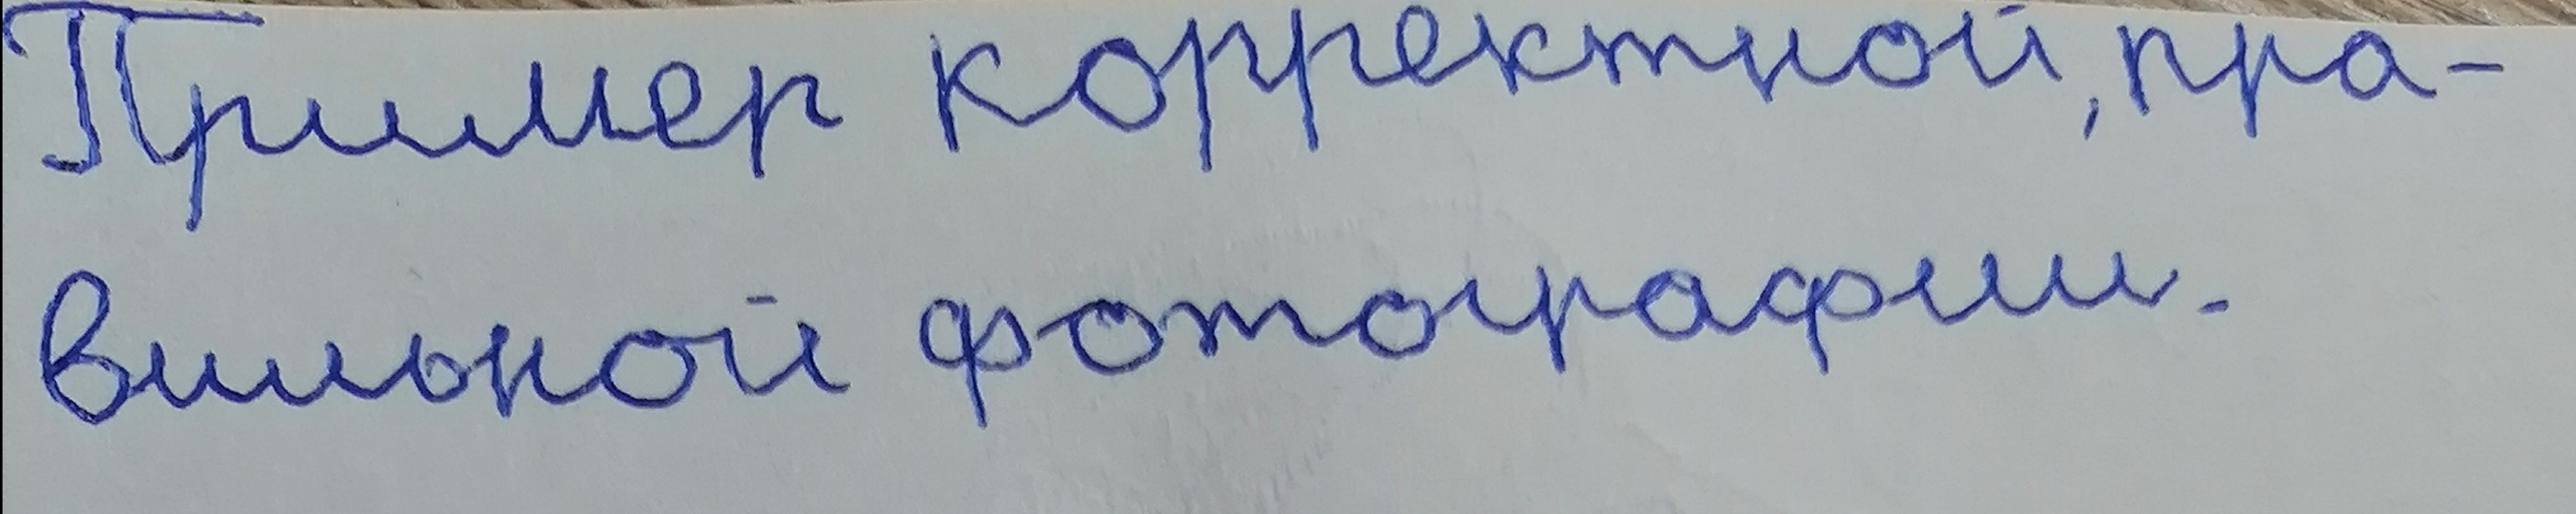 Пример корректной, пра-
вильной фотографии.